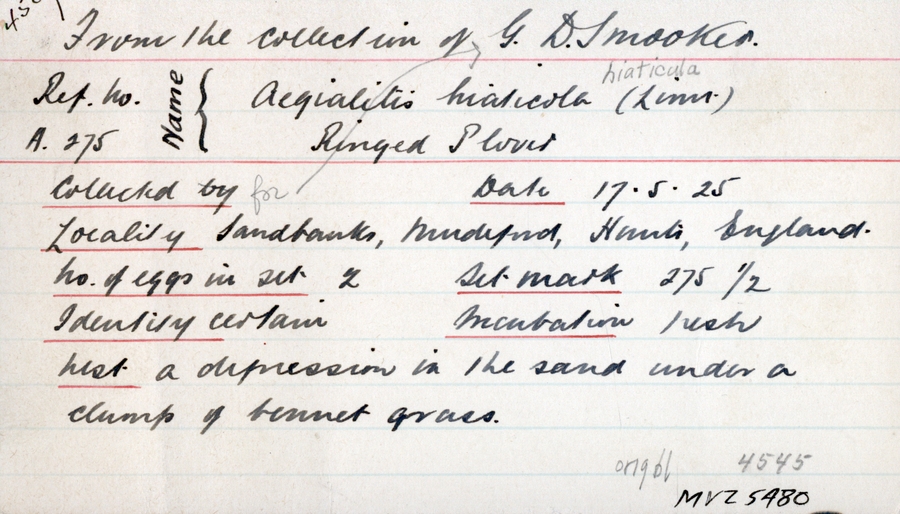 From the collection of G. D. Smooker.
hiaticula
Ref. No. Name { Aegialitis hiaticola (Linn.)
A. 275 Ringed Plover
Collected by for Date 17.5.25
Locality Sandbanks, Mudeford, Hants, England.
No. of eggs in set 2 Set mark 275 1/2
Identity certain Incubation fresh
Nest a depression in the sand under a
clump of bennet grass.
4545
MVZ 5480